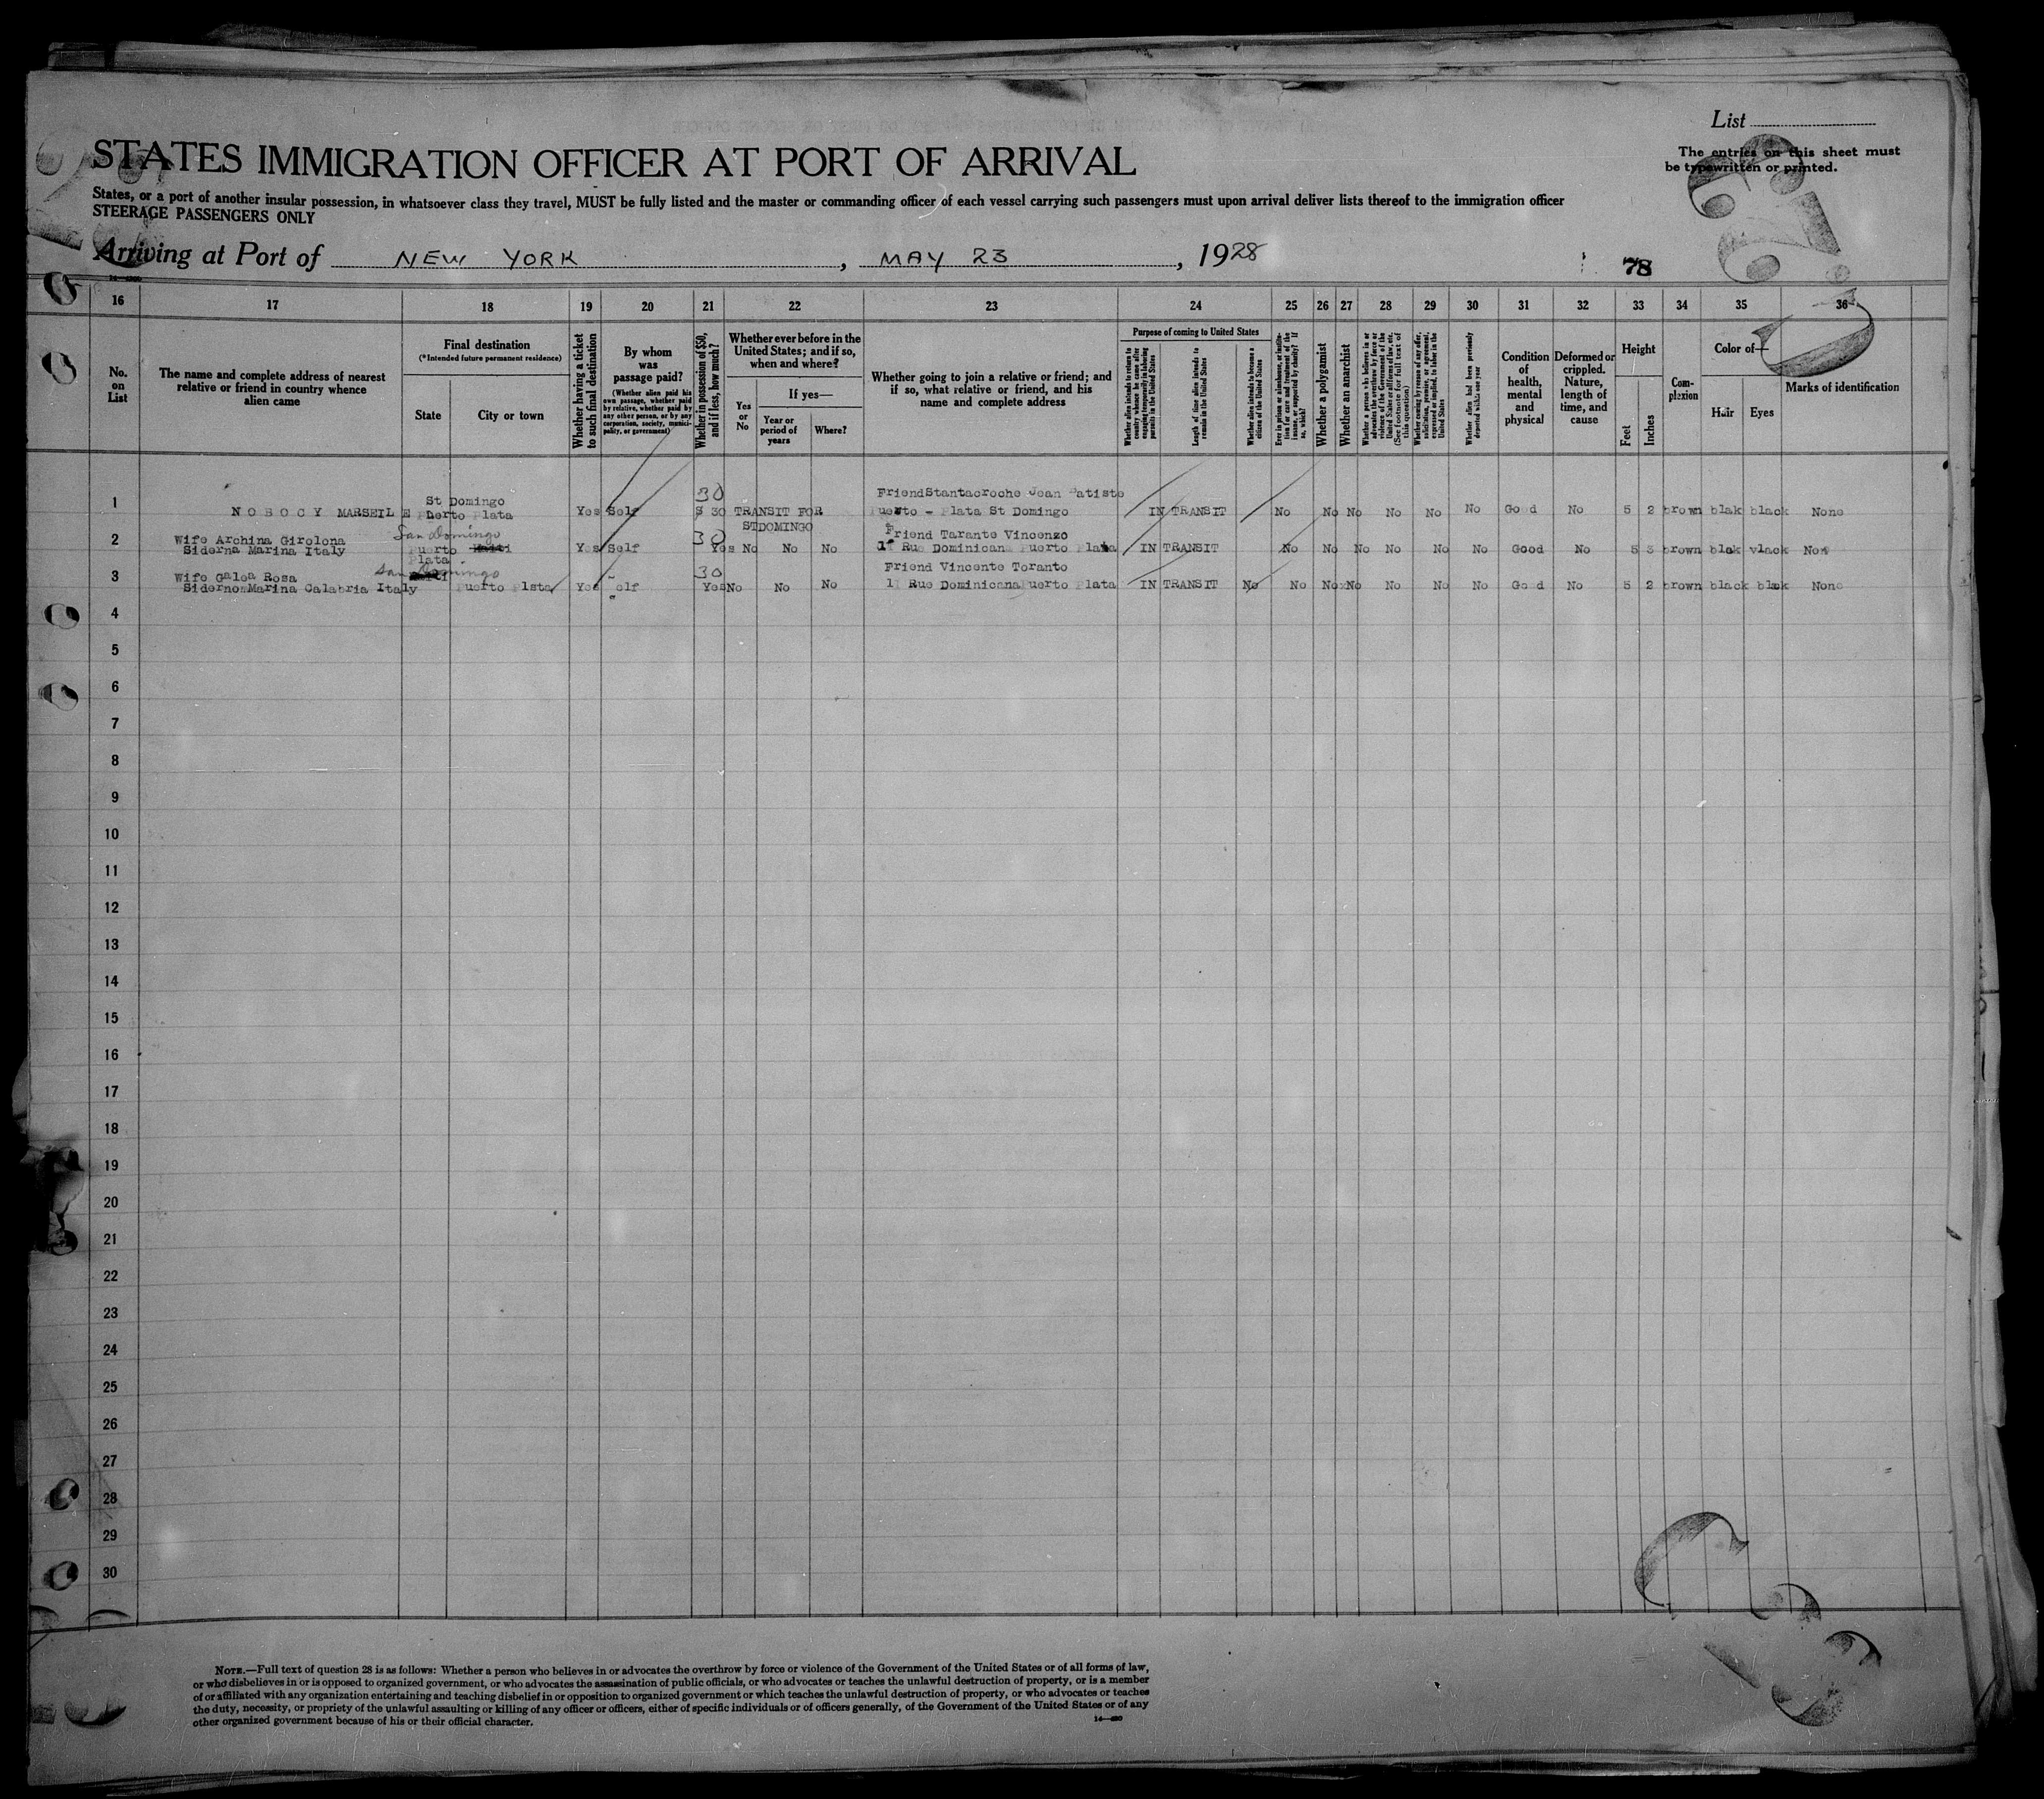 List
STATES IMMIGRATION OFFICER AT PORT OF ARRIVAL
The entries on this sheet must
be typewritten or printed.
States, or a port of another insular possession, in whatsoever class they travel, MUST be fully listed and the master or commanding officer of each vessel carrying such passengers must upon arrival deliver lists thereof to the immigration officer
STEERAGE PASSENGERS ONLY
Arriving at Port of NEW YORK, MAY 23, 1928
78
16 17 18 19 20 21 22 23 24 25 26 27 28 29 30 31 32 33 34 35 36
No.
on
List
The name and complete address of nearest
relative or friend in country whence
alien came
Final destination
(*Intended future permanent residence)
State
City or town
Whether having a ticket
to such final destination
By whom
was
passage paid?
(Whether alien paid his
own passage, whether paid
by relative, whether paid by
any other person, or by any
corporation, society, munici-
pality, or government)
Whether in possession of $50,
and if less, how much?
Whether ever before in the
United States; and if so,
when and where?
Yes
or
No
If yes—
Year or
period of
years
Where?
Whether going to join a relative or friend; and
if so, what relative or friend, and his
name and complete address
Purpose of coming to United States
Whether alien intends to return to
country whence he came after
engaging temporarily in laboring
pursuits in the United States
Length of time alien intends to
remain in the United States
Whether alien intends to become a
citizen of the United States
Ever in prison or almshouse, or institu-
tion for care and treatment of the
insane, or supported by charity? If
so, which?
Whether a polygamist
Whether an anarchist
Whether a person who believes in or
advocates the overthrow by force or
violence of the Government of the
United States or all forms of law, etc.
(See footnote for full text of
this question)
Whether coming by reason of any offer,
solicitation, promise, or agreement,
expressed or implied, to labor in the
United States
Whether alien had been previously
deported within one year
Condition
of
health,
mental
and
physical
Deformed or
crippled.
Nature,
length of
time, and
cause
Height
Feet
Inches
Com-
plexion
Color of—
Hair
Eyes
Marks of identification
St Domingo 30 Friend Stantacroche Jean Batiste
1 NOBOCY MARSEILE Puerto Plata Yes Self $ 30 TRANSIT FOR Puerto - Plata St Domingo IN TRANSIT No No No No No No Good No 5 2 brown blak black None
STDOMINGO
2 Wife Archina Girolona San Domingo 30 Friend Tarante Vincenzo
Siderna Marina Italy Puerto Haiti Yes Self Yes No No No 11 Rue Dominicana Puerto Plata IN TRANSIT No No No No No No Good No 5 3 brown blak vlack Non
Plata
3 Wife Galea Rosa San Domingo 30 Friend Vincente Toranto
Siderno Marina Calabria Italy Puerto Plata Yes elf Yes No No No 11 Rue Dominicana Puerto Plata IN TRANSIT No No No No No No No Good No 5 2 brown black blak None
4
5
6
7
8
9
10
11
12
13
14
15
16
17
18
19
20
21
22
23
24
25
26
27
28
29
30
NOTE.—Full text of question 28 is as follows: Whether a person who believes in or advocates the overthrow by force or violence of the Government of the United States or of all forms of law,
or who disbelieves in or is opposed to organized government, or who advocates the assassination of public officials, or who advocates or teaches the unlawful destruction of property, or is a member
of or affiliated with any organization entertaining and teaching disbelief in or opposition to organized government or which teaches the unlawful destruction of property, or who advocates or teaches
the duty, necessity, or propriety of the unlawful assaulting or killing of any officer or officers, either of specific individuals or of officers generally, of the Government of the United States or of any
other organized government because of his or their official character.